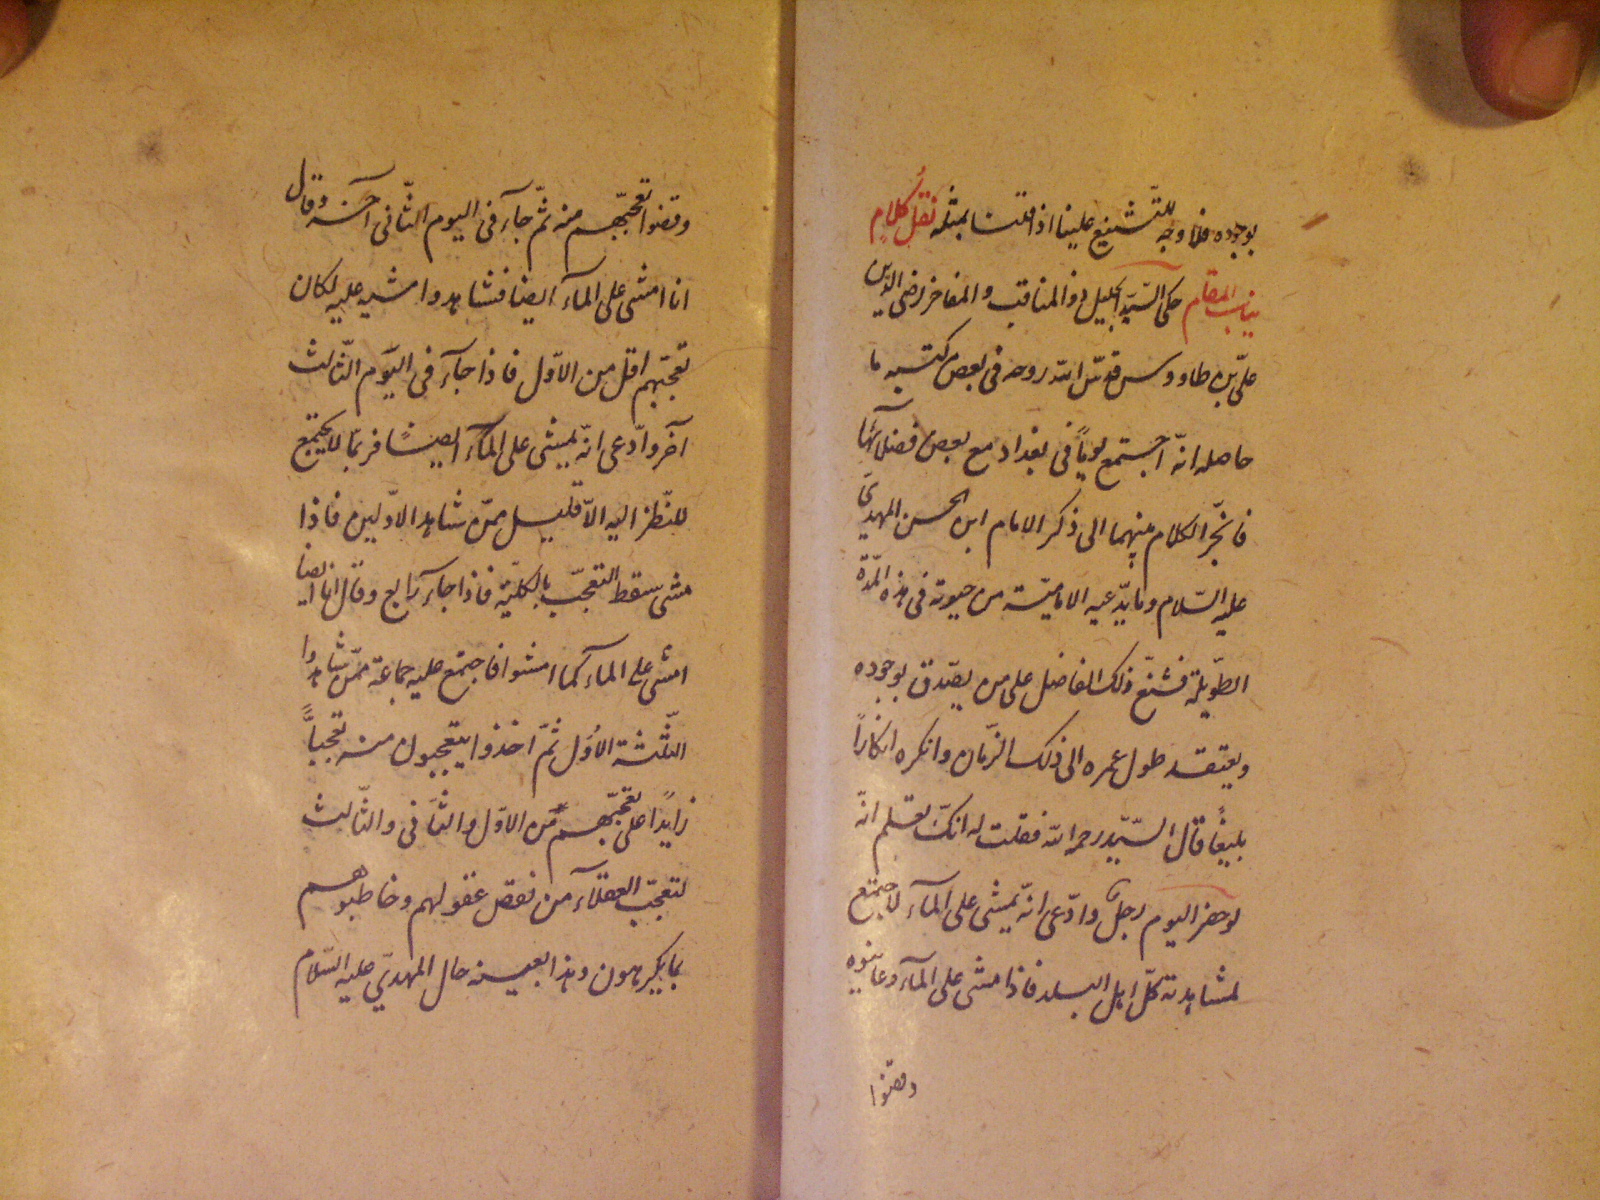 بوجوده فلا وجه للتّشنيع علينا اذا قلنا بمثله نقل كلامٍ
يناسب المقام حكى السّيّد الجليل ذو المناقب والمفاخر رضى الدّين
علىّ بن طاووس قدّس اللّه روحه فى بعض كتبه ما
حاصله انّه اجتمع يوماً فى بغداد مع بعض فضلآئها
فانجرّ الكلام بينهما الى ذكر الامام ابن الحسن المهدىّ
عليه السّلام وما يدّعيه الاماميّة من حيوته فى هذه المدّة
الطّويلة فشنّع ذلك الفاضل على من يصّدق بوجوده
ويعتقد طول عمره الى ذلك الزّمان وانكره انكاراً
بليغاً قال السّيّد رحمه اللّه فقلت له انّك تعلم انّه
لو حضر اليوم رجلٌ وادّعى انّه يمشى على المآء لاجتمع
لمشاهدته كلّ اهل البلد فاذا مشى على المآء وعاينوه
وقضوا
وقضوا تعجّبهم منه ثمّ جآء فى اليوم الثّانى آخر وقال
انا امشى على المآء ايضا فشاهدوا مشيه عليه لكان
تعجّبهم اقل من الاوّل فاذا جآء فى اليوم الثّالث
آخر وادّعى انّه يمشى على المآء ايضاً فربّما لا يجتمع
للنّظر اليه الاّ قليل ممّن شاهد الاوّلين فاذا
مشى سقط التعجّب بالكليّة فاذا جآء رابع وقال انا ايضا
امشى على المآء كما امشوا فاجتمع عليه جماعة ممّن شاهدوا
الثّلثة الاُوَل ثمّ اخذوا يتعجبون منه تعجّباً
زايدًا على تعجّبهم من الاوّل والثّانى والثّالث
لتعجّب العقلآء من نقص عقولهم وخاطبوهم
بما يكرهون وهذا بعينه حال المهدىّ عليه السّلام